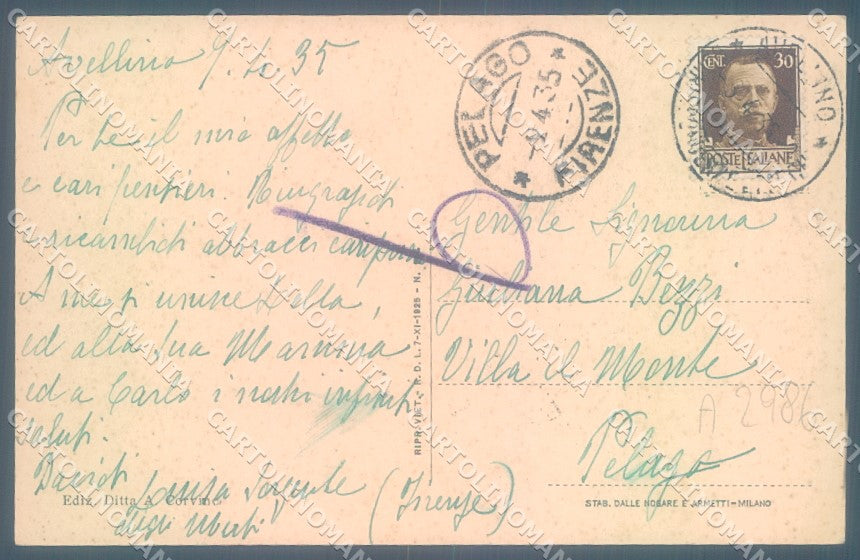 Avellino 9.4.35
Per te il mio affetto
e cari pensieri. Ringraziati
e ricambiati abbracci
A me si unisce Della,
ed alla tua Mamma
ed a Carlo i nostri infiniti
saluti.
Baciati
Luisa
degli Uberti
Ediz. Ditta A. Corvino
RIPR. VIET. - R. D. L. 7-XI-1925 - N.
PELAGO * FIRENZE *
4.35
CENT. 30
POSTE ITALIANE
AVELLINO
Gentile Signorina
Giuliana Bezzi
Villa al Monte
Pelago
(Firenze)
A 2986
STAB. DALLE NOGARE E ARMETTI-MILANO
CARTOLINOMANIA